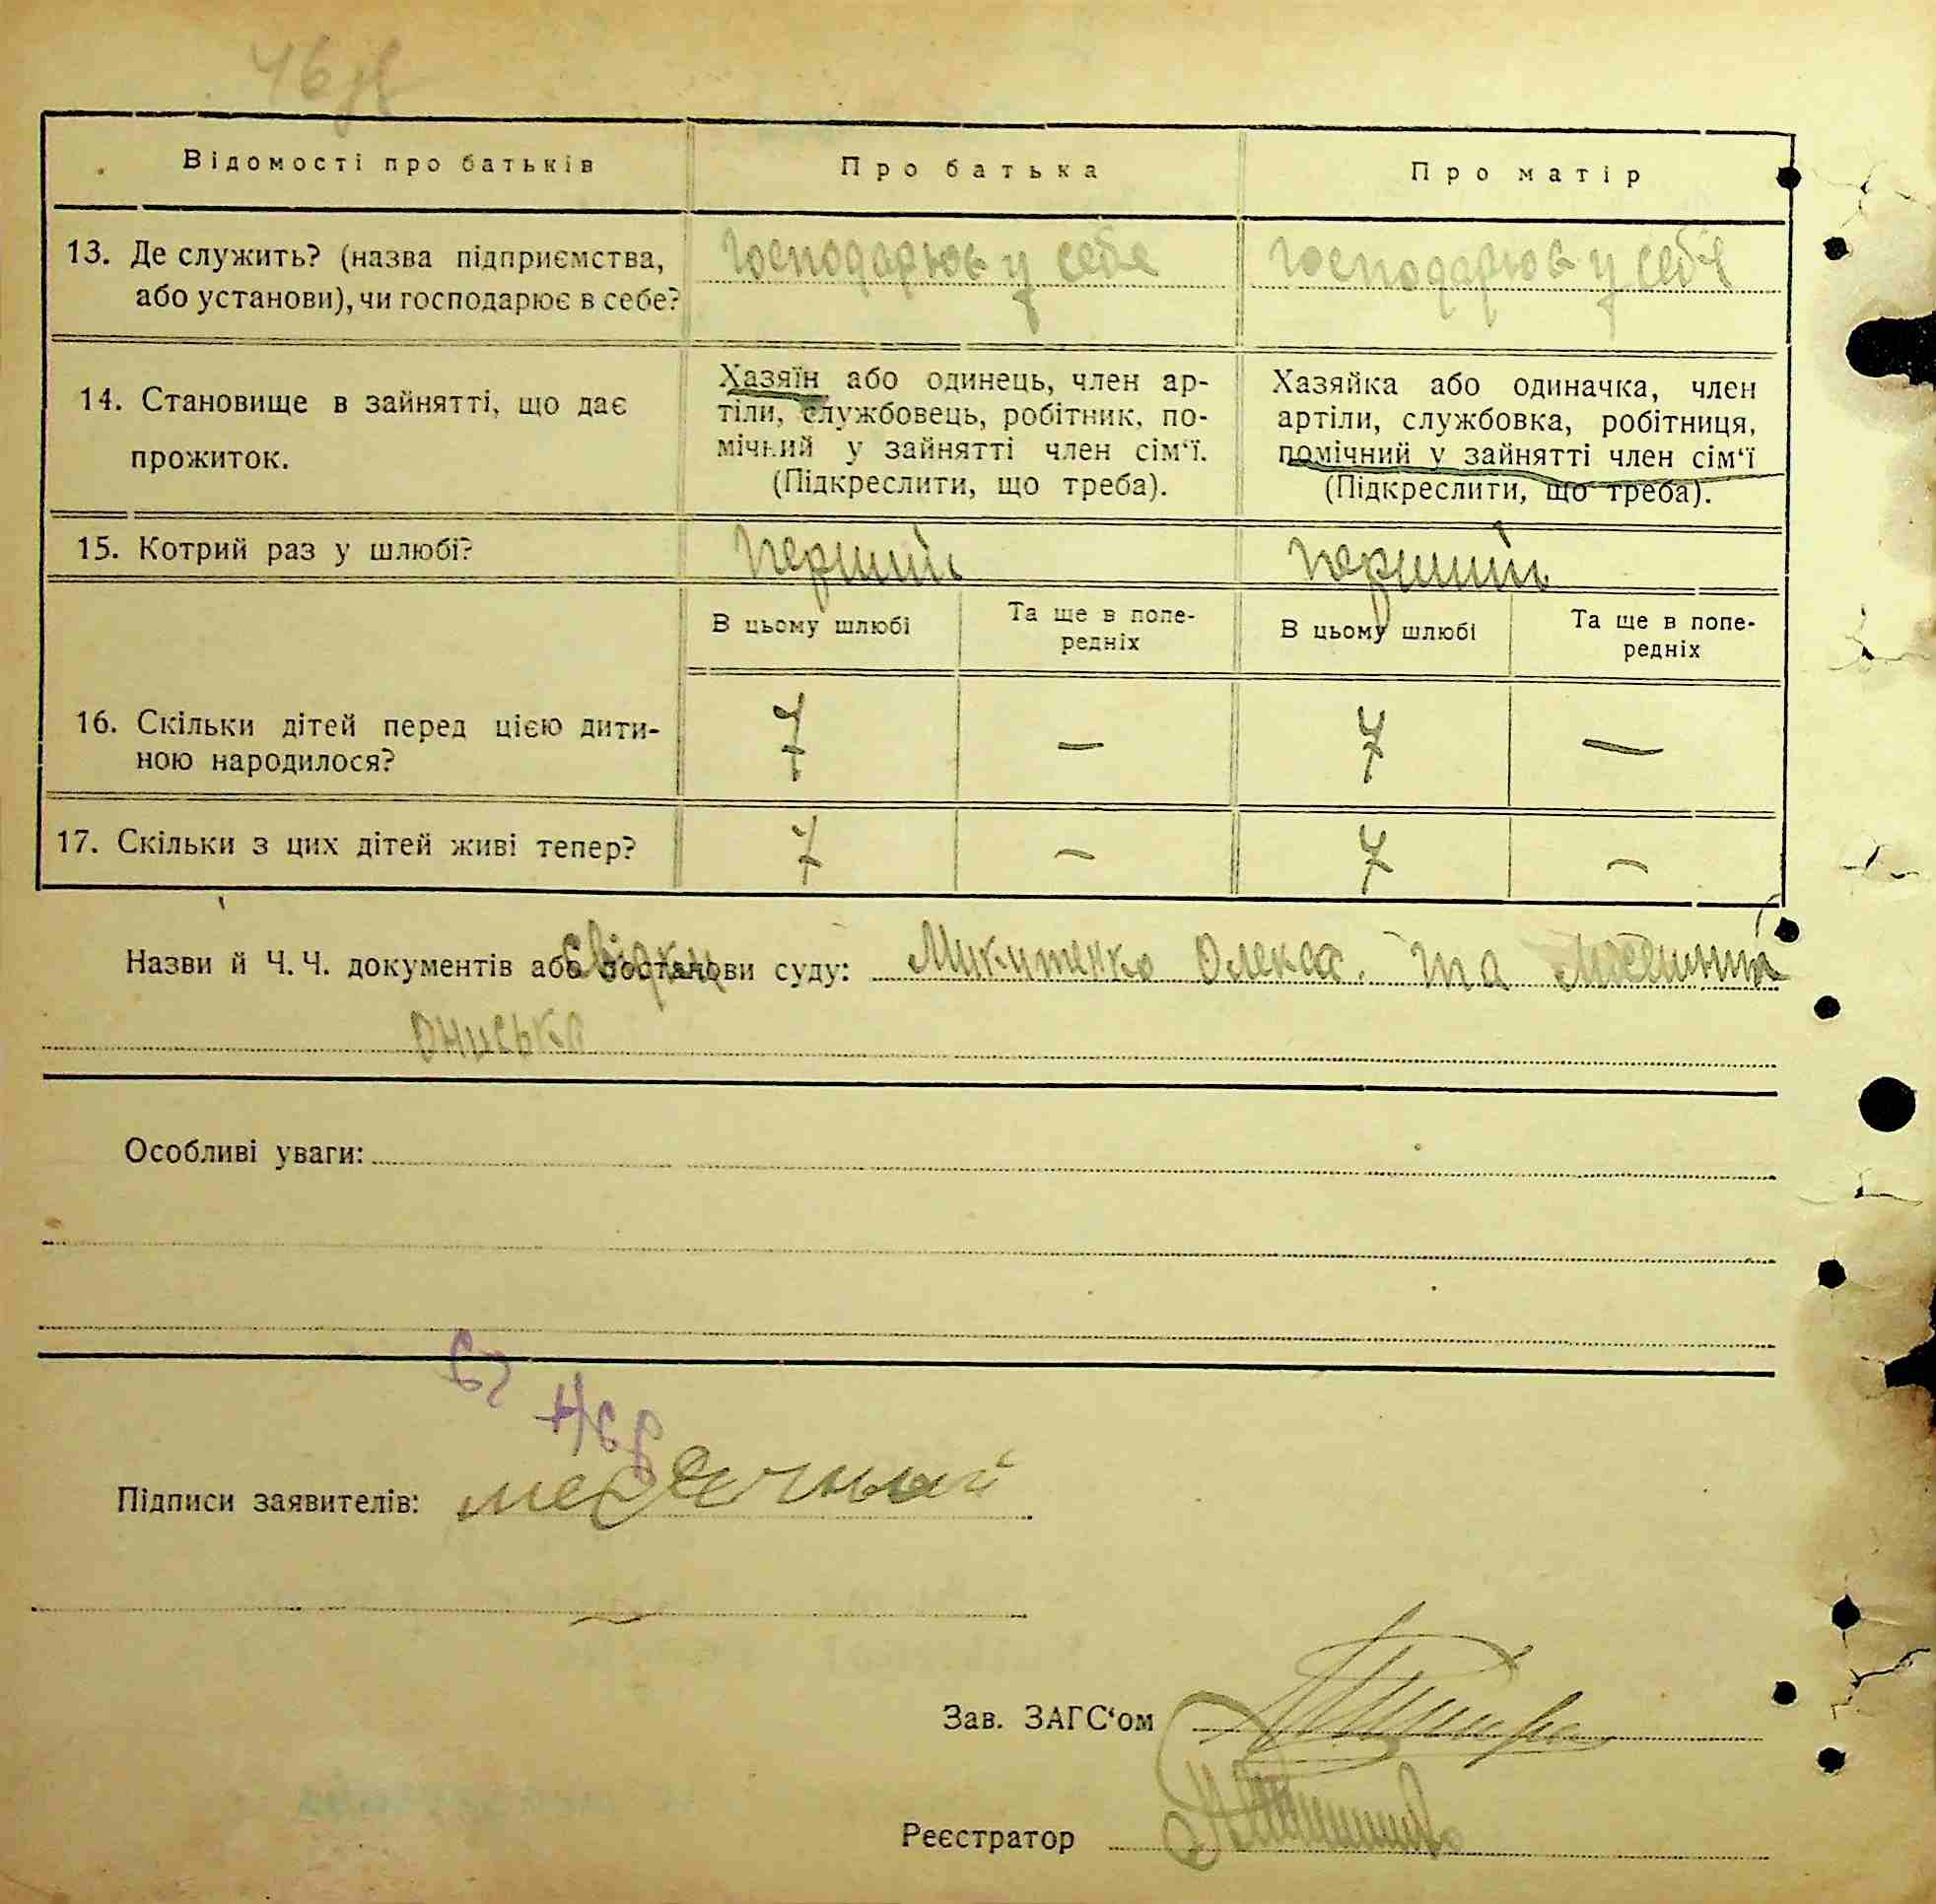 Відомості про батьків
Про батька
Про матір
13. Де служить? (назва підприємства,
або установи), чи господарює в себе?
господарює у себе
господарює у себе
14. Становище в зайнятті, що дає
прожиток.
Хазяїн або одинець, член ар-
тіли, службовець, робітник, по-
мічний у зайнятті член сім'ї.
(Підкреслити, що треба).
Хазяйка або одиначка, член
артіли, службовка, робітниця,
помічний у зайнятті член сім'ї
(Підкреслити, що треба).
15. Котрий раз у шлюбі?
перший
перший
В цьому шлюбі
Та ще в попе-
редніх
В цьому шлюбі
Та ще в попе-
редніх
16. Скільки дітей перед цією дити-
ною народилося?
7 — 7 —
17. Скільки з цих дітей живі тепер?
7 — 7 —
Назви й Ч. Ч. документів або постанови суду: свідки Микитенко Олекса. та
Ониська
Особливі уваги:
Підписи заявителів:
Зав. ЗАГС'ом
Реєстратор